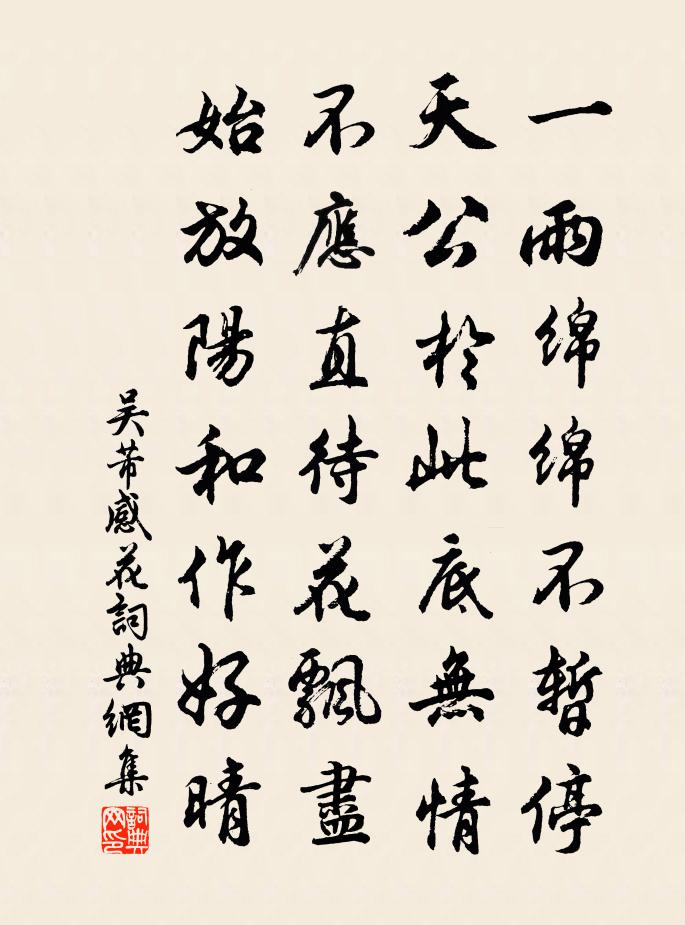 一雨绵绵不暫停
天公於此底無情
不應直待花飄盡
始放陽和作好晴
吴芾感花詞典網集
詞典網印